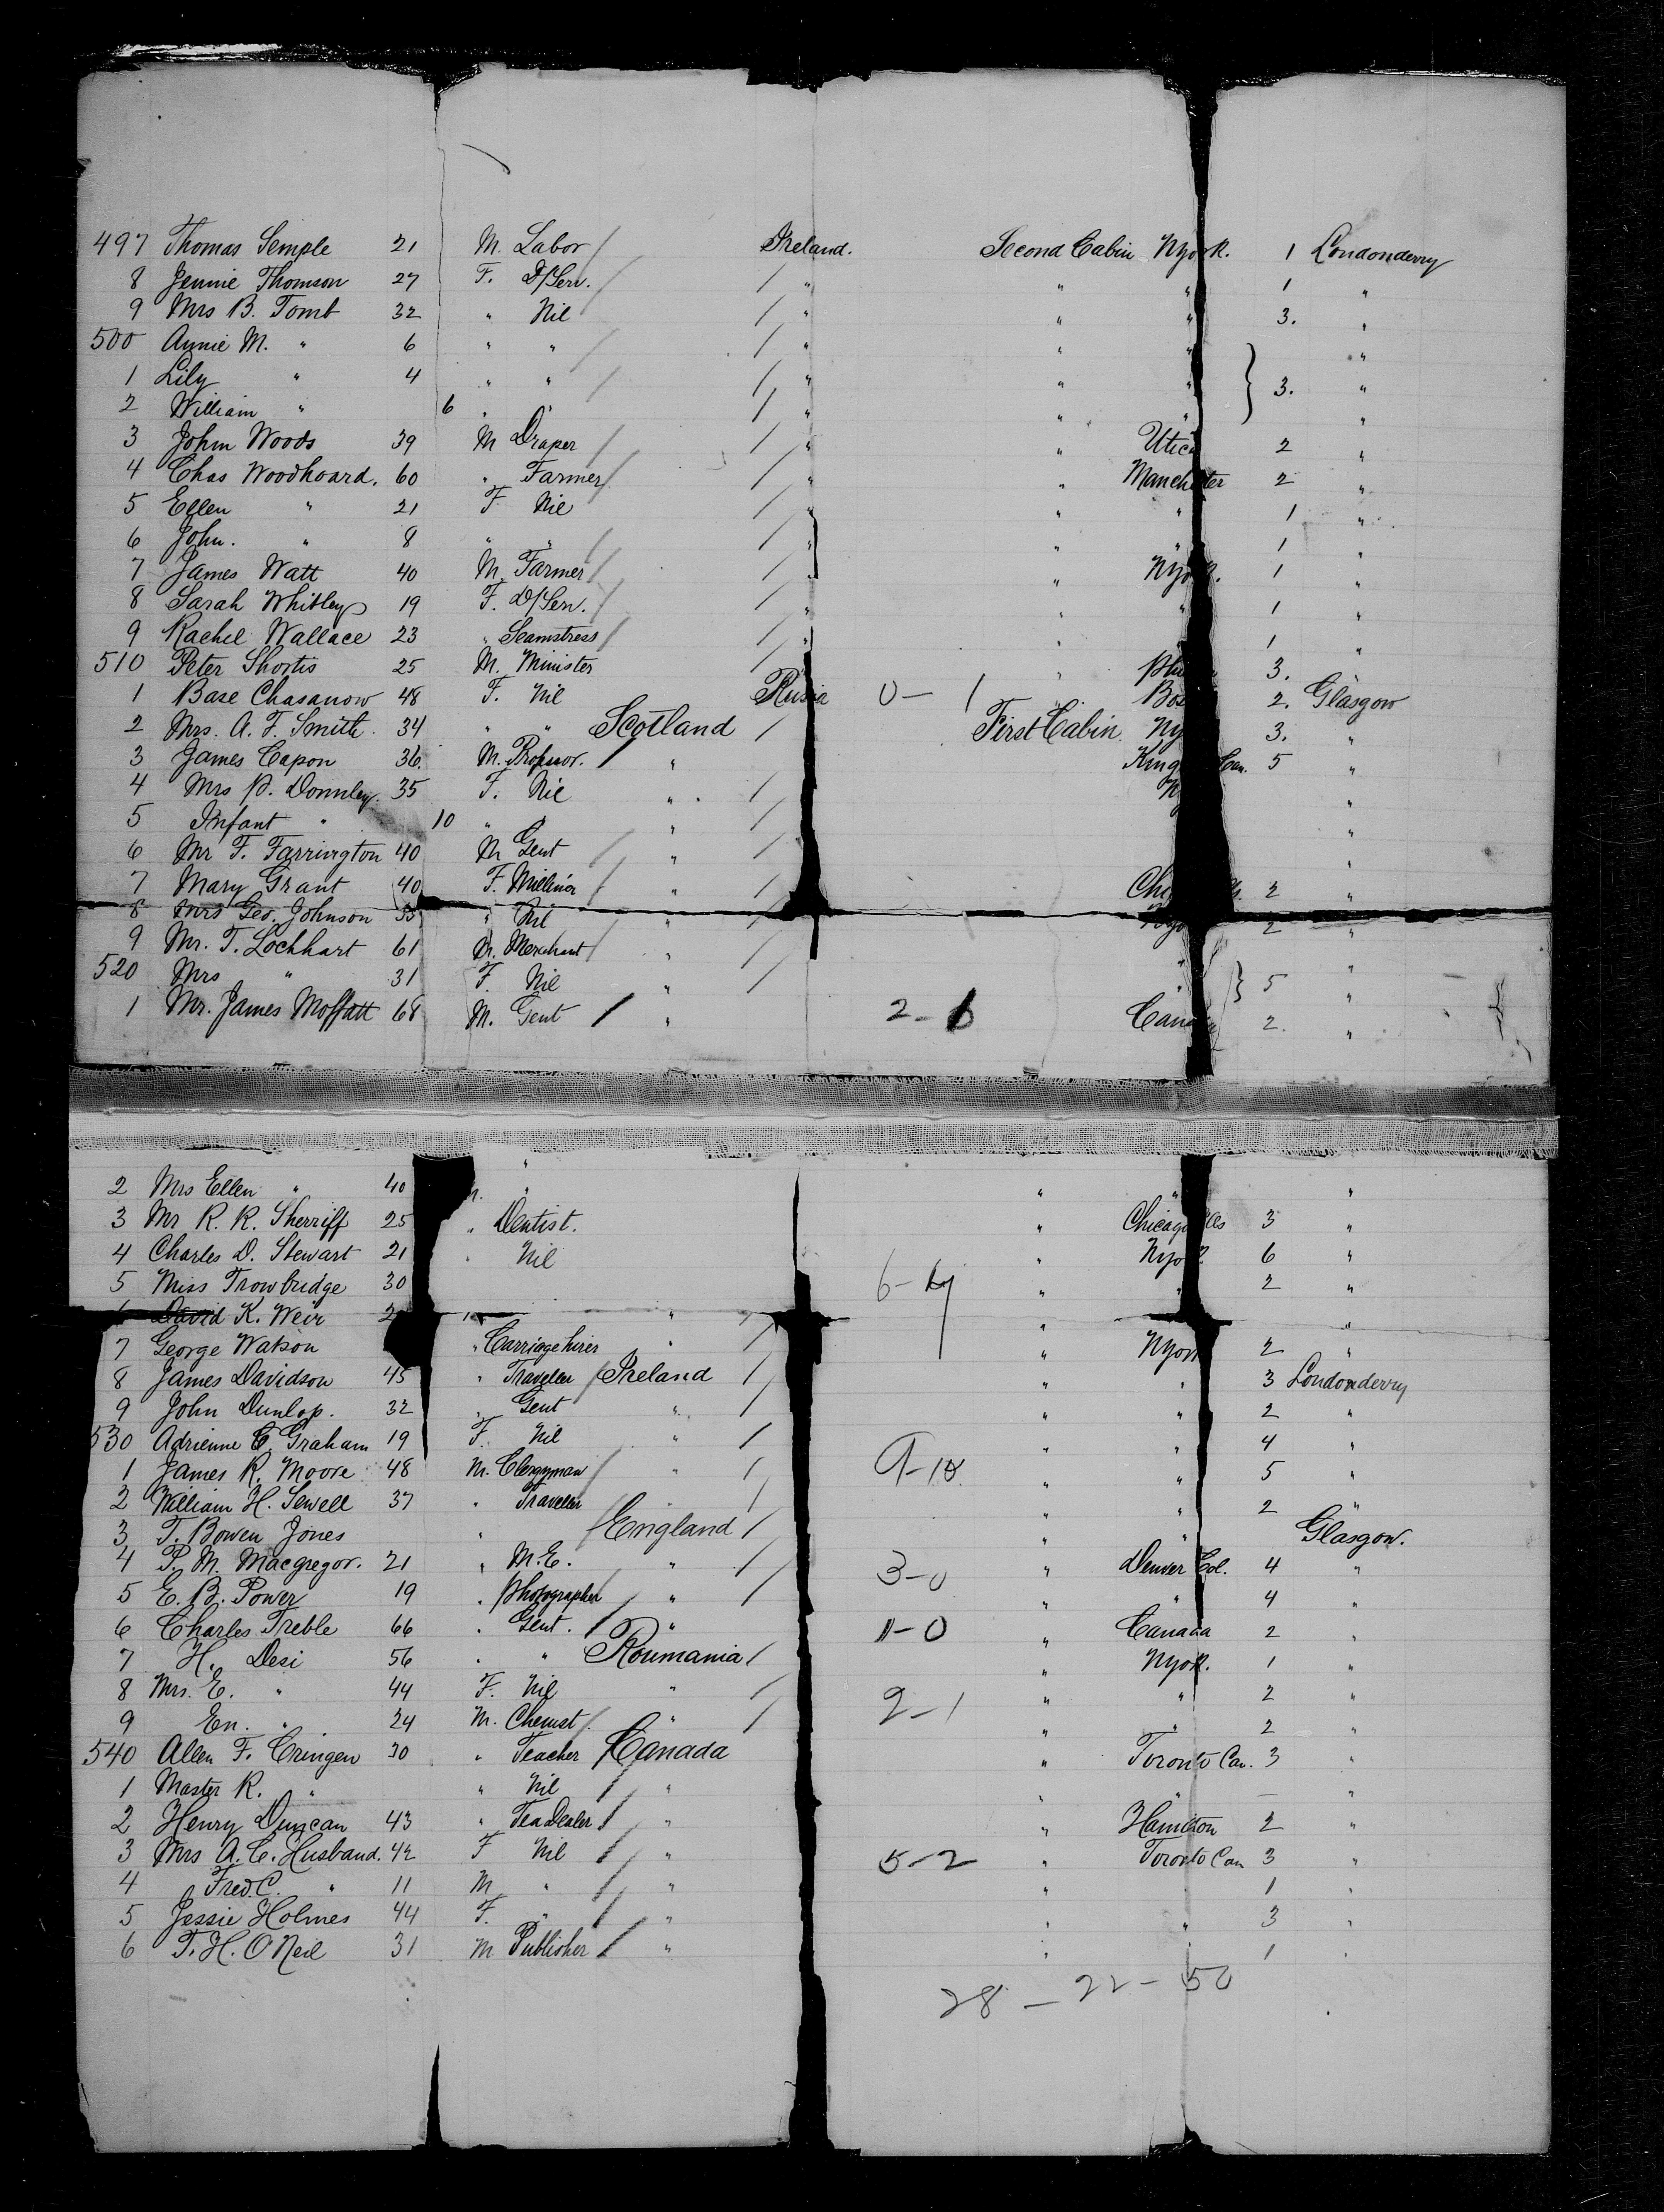 497 Thomas Semple 21 M. Labor / Ireland. Second Cabin Nyork. 1 Londonderry
8 Jennie Thomson 27 F. D/Serv. / / " " " 1 "
9 Mrs B. Tomb 32 " Nil / " " " 3. "
500 Annie M. " 6 " " / / " " " "
1 Lily " 4 " " / / " " " } 3. "
2 William " 6 " " / / " " " "
3 John Woods 39 M Draper / / " " Utica 2 "
4 Chas Woodhoard. 60 " Farmer / / " " Manchester 2 "
5 Ellen " 21 F. Nil / " " " 1 "
6 John. " 8 " " / / " " " 1 "
7 James Watt 40 M. Farmer / / " " Nyork. 1 "
8 Sarah Whitley 19 F. D/Serv. / / " " 1 "
9 Rachel Wallace 23 " Seamstress / / " " 1 "
510 Peter Shortis 25 M. Minister / " 3.
1 Base Chasanow 48 F. Nil Russia 0 - 1 Bos 2. Glasgow
2 Mrs. A. F. Smith. 34 " " Scotland / First Cabin Ny 3. "
3 James Capon 36. M. Professor. / " King Can. 5 "
4 Mrs P. Donnley. 35 F. Nil " / N "
5 Infant " 10 " " " / "
6 Mr F. Farrington 40 M Gent / " / "
7 Mary Grant 40 F. Milliner / " / Chi 2 "
8 Mrs Geo. Johnson 35 " Nil / " / Nyo 2 "
9 Mr. T. Lochhart 61 M. Merchant / " / " "
520 Mrs " 31 F. Nil " / " } 5 "
1 Mr. James Moffatt 68 M. Gent / " 2 - 6 Canada 2. "
2 Mrs Ellen " 40 " " " "
3 Mr R. R. Sherriff 25 " Dentist. " Chicago Ills 3 "
4 Charles D. Stewart 21 " Nil " Nyork 6 "
5 Miss Trowbridge 30 6 - 4 " " 2 "
6 David K. Weir 2 " " / " "
7 George Watson " Carriage hirer " / " Nyork 2 "
8 James Davidson 45 " Traveller / Ireland / " " 3 Londonderry
9 John Dunlop. 32 " Gent " / " " 2 "
530 Adrienne C. Graham 19 F. Nil " / " " 4 "
1 James R. Moore 48 M. Clergyman / " / 9 - 10 " " 5 "
2 William H. Sewell 37 " Traveller / " / " " 2 "
3 T. Bowen Jones " / England / " " Glasgow.
4 P. M. Macgregor. 21 " M.E. " / 3 - 0 " Denver Col. 4 "
5 E. B. Power 19 " Photographer / " / " " 4 "
6 Charles Treble 66 " Gent. / " 11 - 0 " Canada 2 "
7 H. Desi 56 " " Roumania / " Nyork. 1 "
8 Mrs. E. " 44 F. Nil " / 2 - 1 " " 2 "
9 En. " 24 M. Chemist / " / " " 2 "
540 Allen F. Cringen 30 " Teacher / Canada " Toronto Can. 3 "
1 Master R. " " Nil / " " " — "
2 Henry Duncan 43 " Tea Dealer / " " Hamilton 2 "
3 Mrs A. C. Husband. 42 F Nil / " 5 - 2 " Toronto Can 3 "
4 Fred. C. " 11 M " / " " " 1 "
5 Jessie Holmes 44 F. " / " " " 3 "
6 T. H. O'Neil 31 M Publisher / " " 1 "
28 - 22 - 50